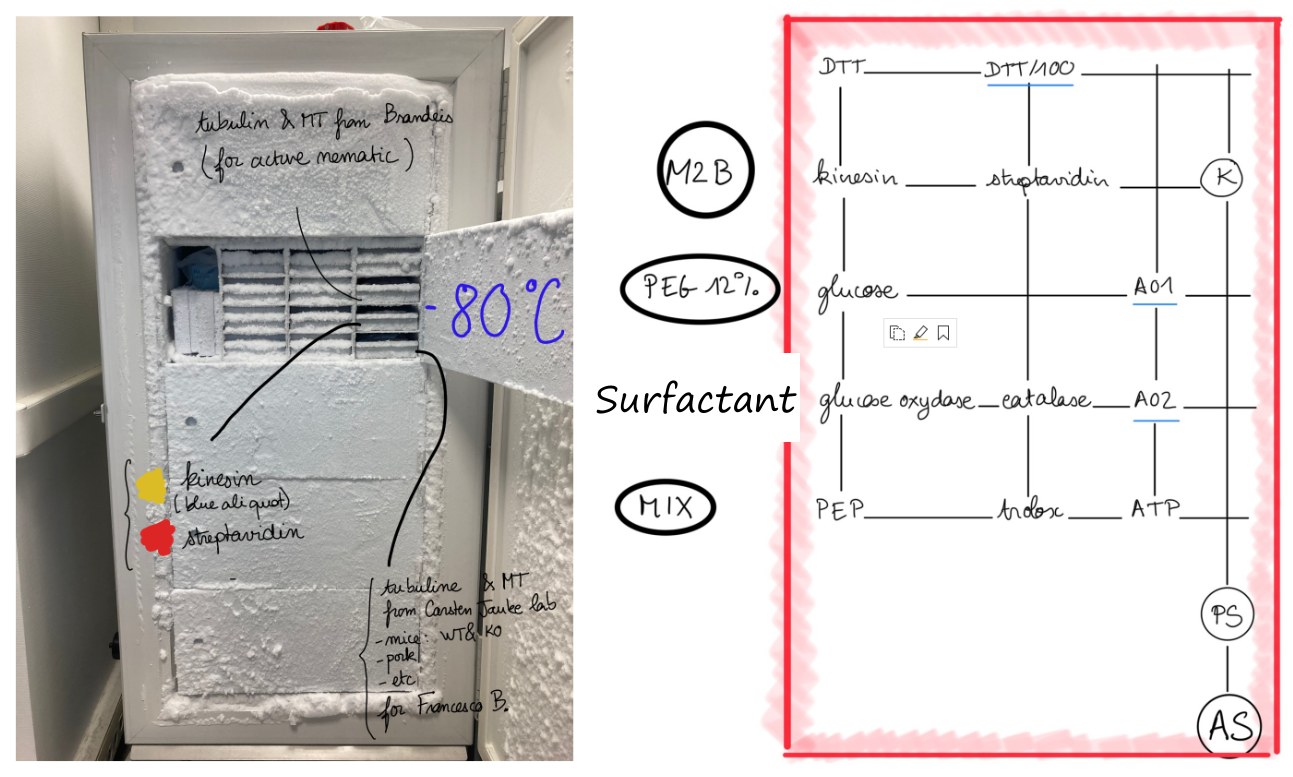 tubulin & MT from Brandeis
(for active nematic)
-80°C
kinesin
(blue aliquot)
streptavidin
tubuline & MT
from Carsten Janke lab
- mice: WT & KO
- pork
- etc
for Francesca B.
M2B
PEG 12%
Surfactant
MIX
DTT DTT/100
kinesin streptavidin K
glucose AO1
glucose oxydase catalase AO2
PEP trolox ATP
PS
AS